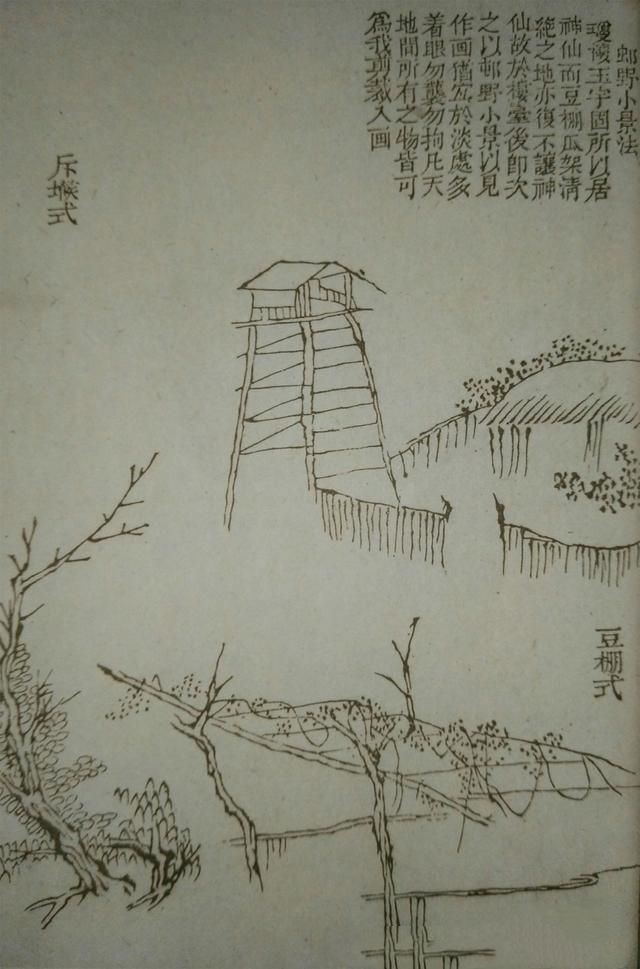 邨野小景法
瓊樓玉宇固所以居
神仙而豆棚瓜架清
絶之地亦復不讓神
仙故於樓臺後卽次
之以邨野小景以見
作画猶宐於淡處多
着眼勿襲勿拘凡天
地間所有之物皆可
爲我剪裁入画
斥堠式
豆棚式